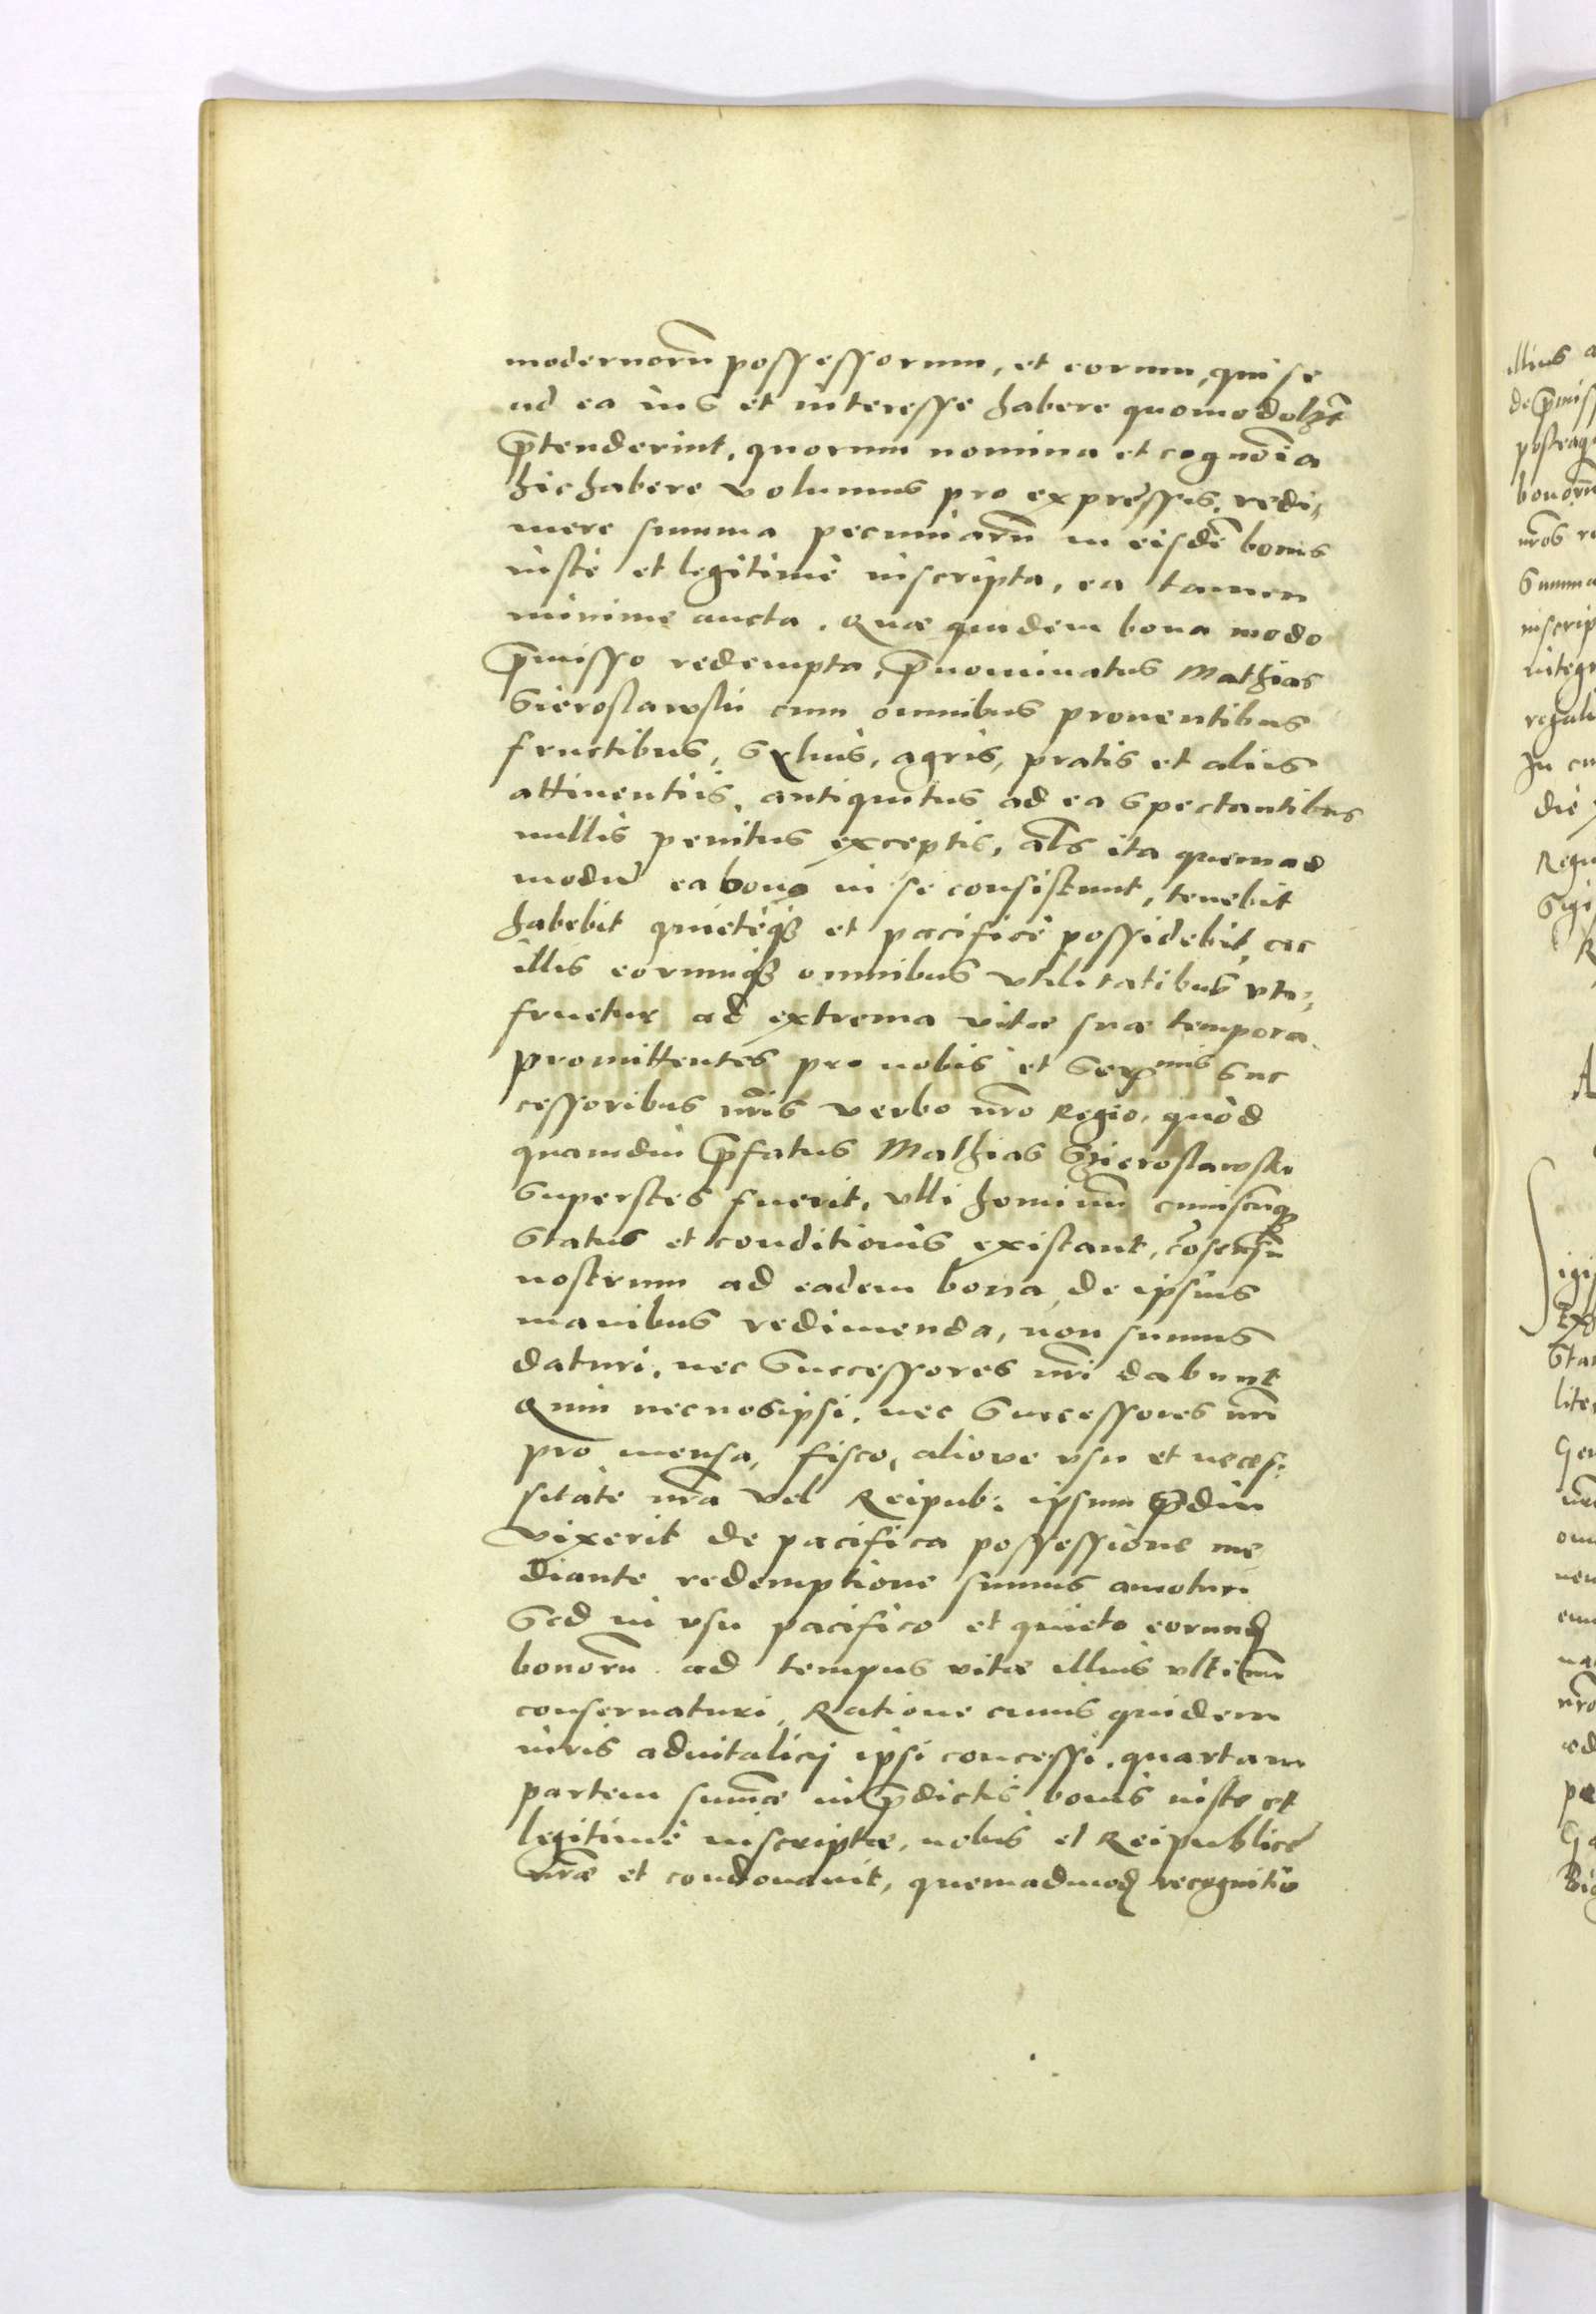 modernorũ possessorum, et eorum, qui se
ad ea ius et interesse habere quomodolꝫt
p̃tenderint, quorum nomina et cognõia
hic habere volumus pro expressis, redi,
mere summa pecuniarũ in eisdẽ bonis
iuste et legitime inscripta, ea tamen
minime aucta. Quæ quidem bona modo
p̃misso redempta, p̃nominatus Mathias
Sieroslawski cum omnibus prouentibus
fructibus, Syluis, agris, pratis et aliis
attinentiis, antiquitus ad ea spectantibus
nullis penitus exceptis, al̃s ita quemad
modũ ea bona in se consistunt, tenebit
habebit quietèqꝫ et pacificè possidebit, ac
illis eorumqꝫ omnibus vtilitatibus vte,
fruetur ad extrema vitæ suæ tempora.
promittentes pro nobis et Serꝫmis Suc
cessoribus nr̃is verbo nr̃o Regio, quòd
quamdiu p̃fatus Mathias Szieroslawski
Superstes fuerit, vlli hominũ cuiuscũqꝫ
Status et conditionis existant, cõsensũ
nostrum ad eadem bona de ipsius
manibus redimenda, non sumus
daturi, nec Successores nr̃i dabunt
Quin nec nosipsi, nec Successores nr̃i
pro mensa, fisco, alioue vsu et neces,
sitate nr̃a vel Reipub: ipsum q̃diu
vixerit de pacifica possessione me
diante redemptione sumus amoturi
Sed in vsu pacifico et quieto eorundꝫ
bonorũ ad tempus vitæ illius vltimũ
conseruaturi, Ratione cuius quidem
iuris aduitalicij ipsi concessi, quartam
partem sum̃æ in p̃dictis bonis iuste et
legitimè inscriptæ, nobis et Reipublicæ
nr̃æ et condonauit, quemadmodꝫ recognitio
illius
de p̃miss
bonorũ
nr̃os
Summa
inscrip
integr
regali
In cu
die
Regn
Sigi